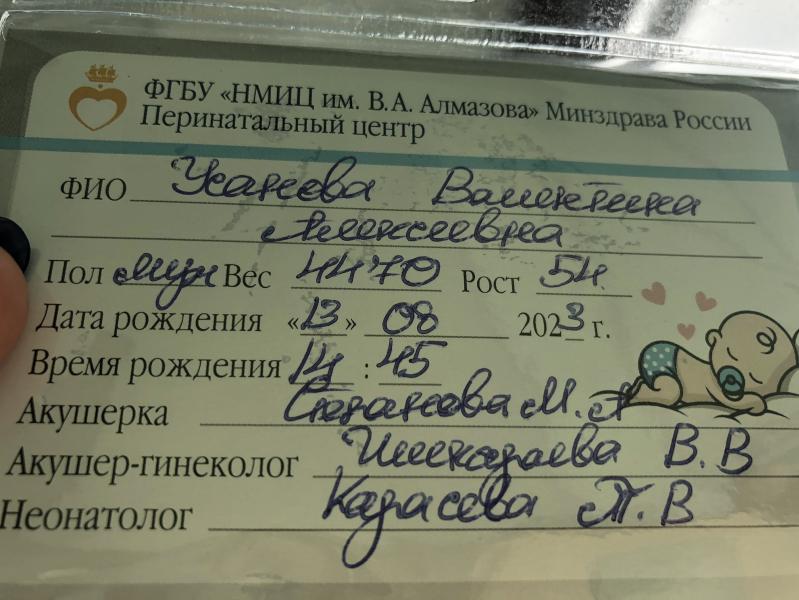 ФГБУ «НМИЦ им. В.А. Алмазова» Минздрава России
Перинатальный центр
ФИО Усанова Валентина
Алексеевна
Пол муж Вес 4470 Рост 54
Дата рождения «13» 08 2023 г.
Время рождения 14 : 45
Акушерка Степанова М.А
Акушер-гинеколог В.В
Неонатолог Карасева Т.В